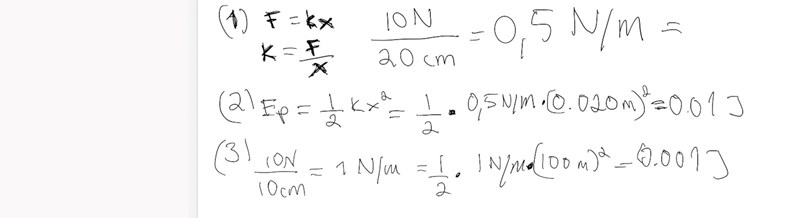 (1) F = kx   10N / 20 cm = 0,5 N/m =
K = F / x
(2) Ep = 1/2 kx² = 1/2 · 0,5 N/m · (0.020m)² = 0.01 J
(3) 10N / 10cm = 1 N/m = 1/2 · 1 N/m · (100 m)² = 0.001 J